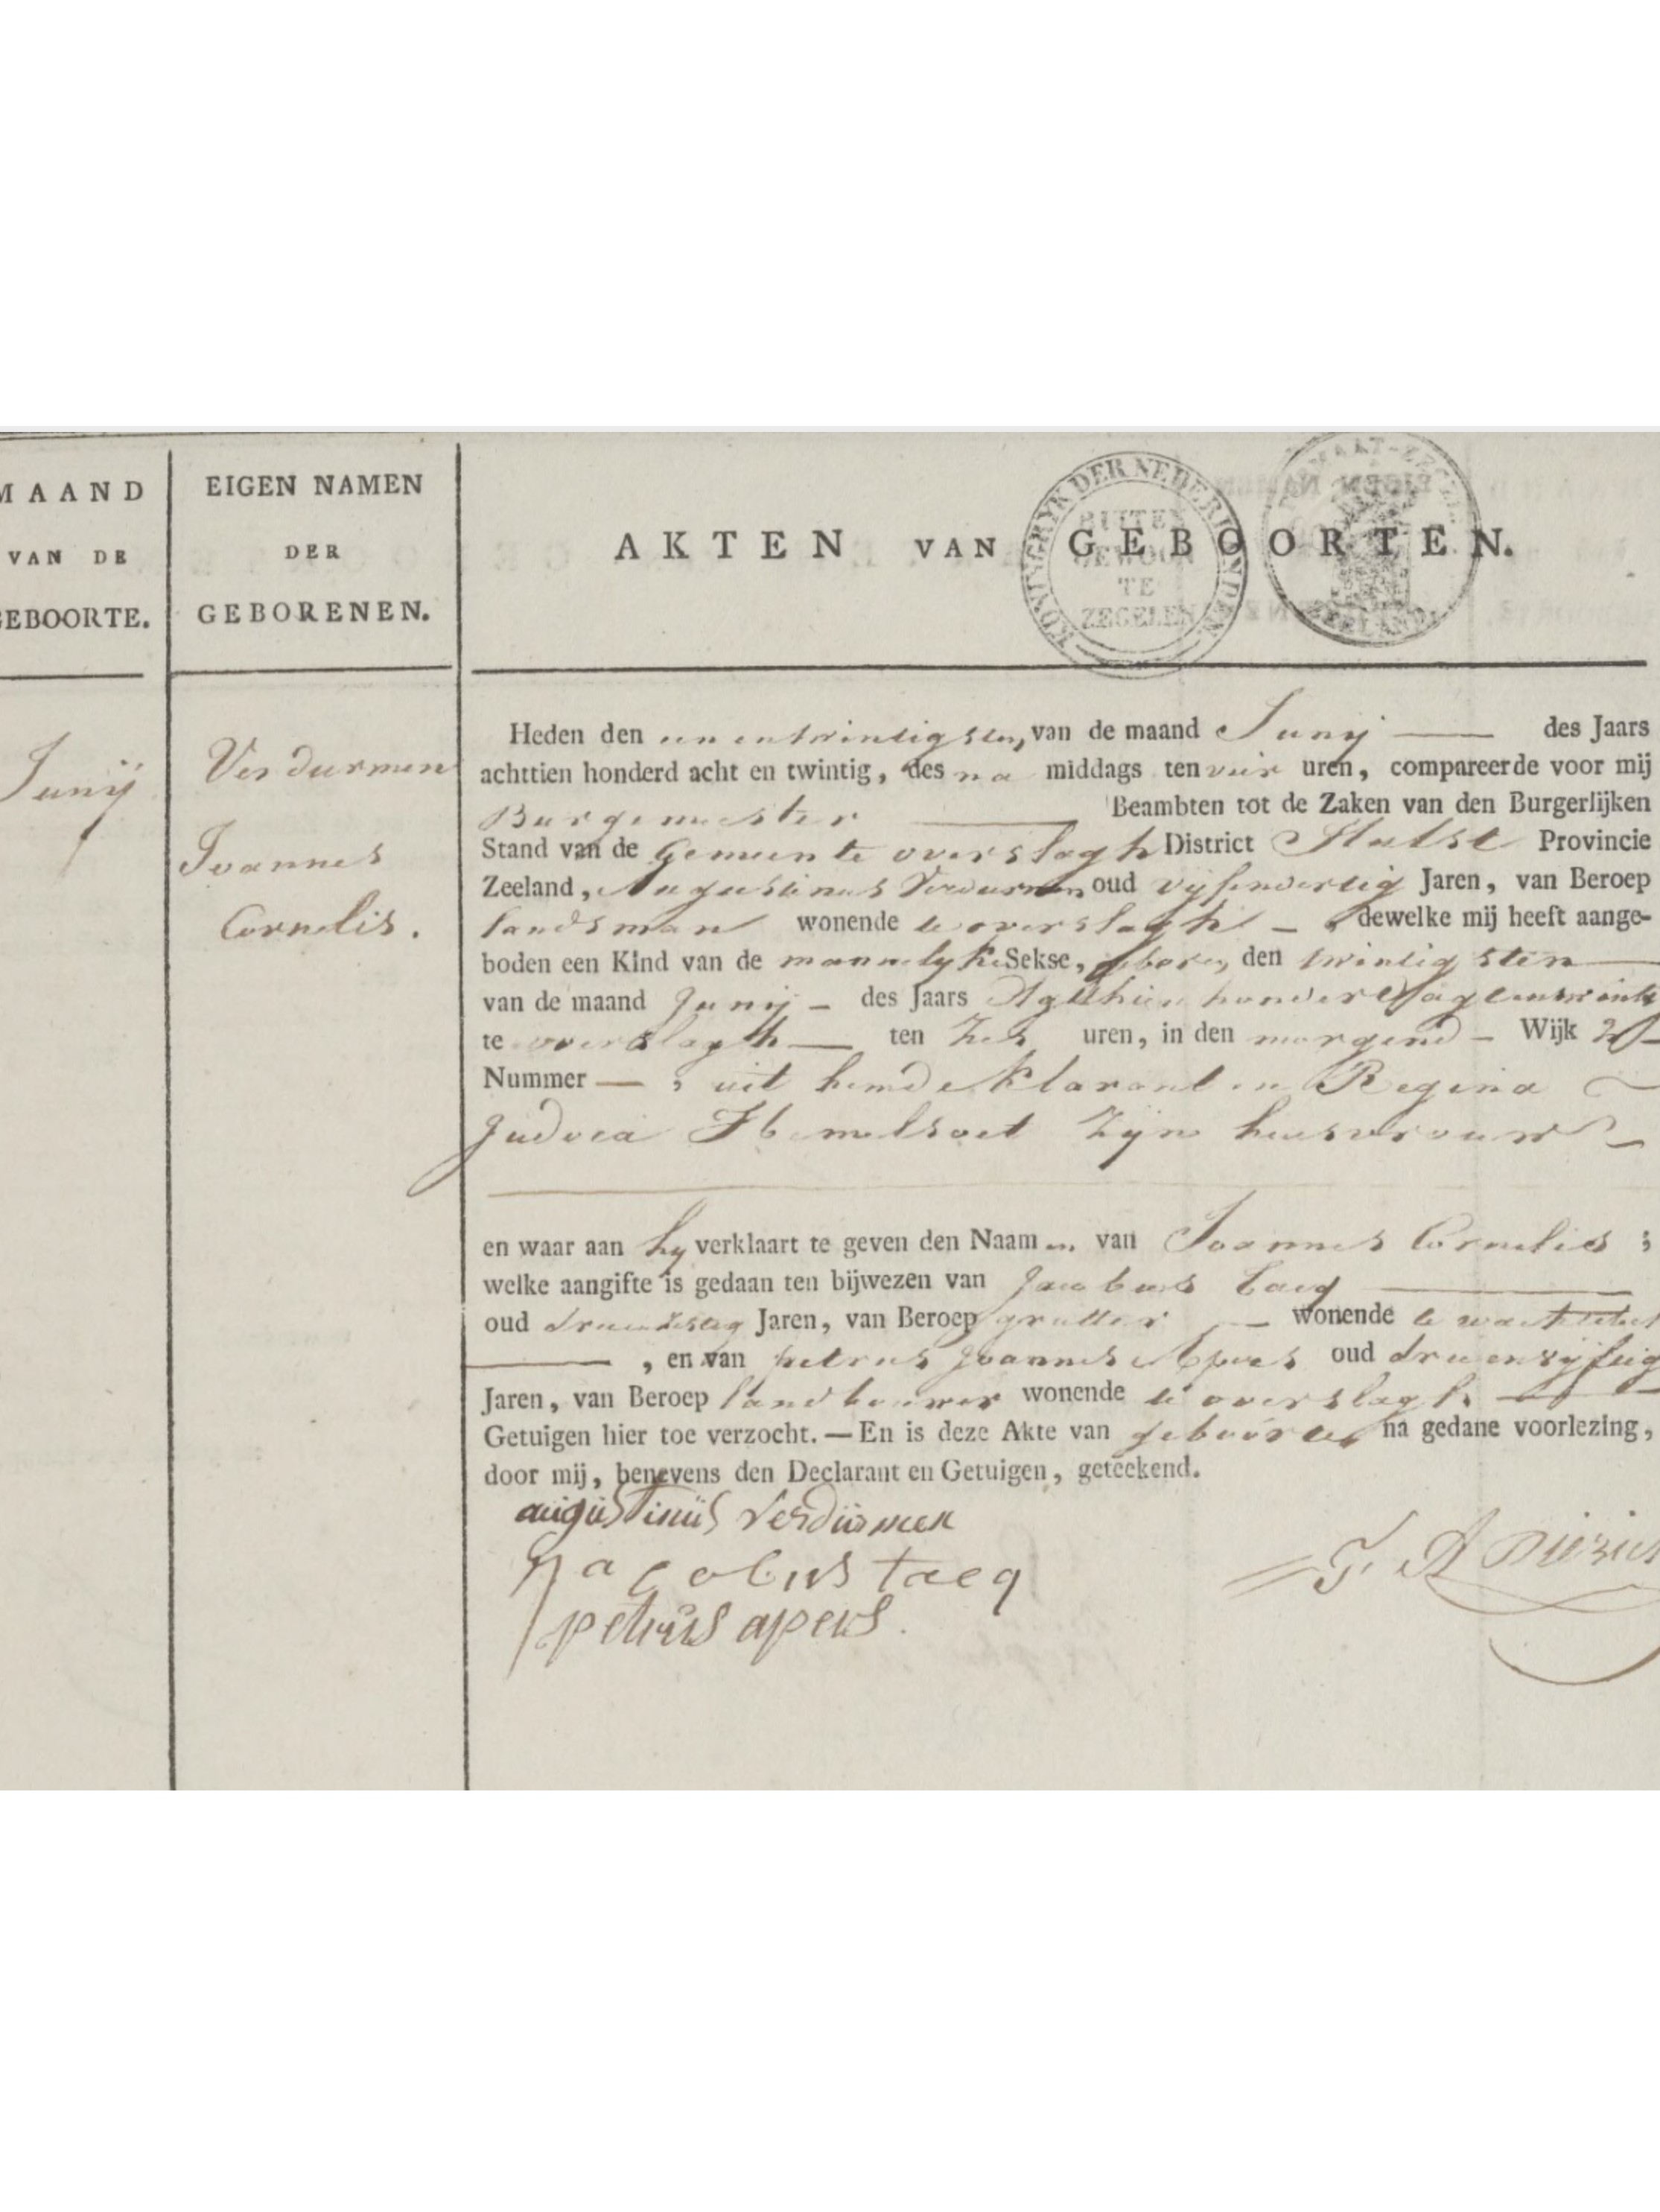 MAAND
VAN DE
GEBOORTE.
EIGEN NAMEN
DER
GEBORENEN.
AKTEN VAN GEBOORTEN.
KONINGRYK DER NEDERLANDEN
BUITEN
GEWOON
TE
ZEGELEN
Junij
Verdurmen
Joannes
Cornelis.
Heden den een entwintigsten, van de maand Junij — des Jaars
achttien honderd acht en twintig, des na middags ten vier uren, compareerde voor mij
Burgemeester — Beambten tot de Zaken van den Burgerlijken
Stand van de Gemeente overslagh District Hulst Provincie
Zeeland, Augustinus Verdurmen oud vijfendertig Jaren, van Beroep
landsman wonende te overslagh — dewelke mij heeft aange-
boden een Kind van de mannelyke Sekse, geboren, den twintigsten —
van de maand Junij — des Jaars Agthien honderd
te overslagh — ten Zes uren, in den morgend — Wijk
Nummer — ; uit hemdeklarant en Regina
Judoca Hemelsoet Zijne huisvrouw —
en waar aan hy verklaart te geven den Naam en van Joannes Cornelies ;
welke aangifte is gedaan ten bijwezen van Jacobus taeq —
oud drieenzestig Jaren, van Beroep grutter — wonende te
— , en van petrus Joannes Apers oud drieenvijftig
Jaren, van Beroep landbouwer wonende te overslagh —
Getuigen hier toe verzocht. — En is deze Akte van geboorte, na gedane voorlezing,
door mij, benevens den Declarant en Getuigen, geteekend.
augustinus Verdurmen
Jacobus taeq
petrus apers.